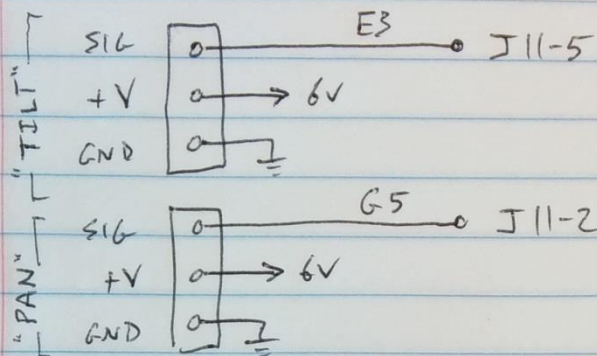 "TILT"
SIG E3 J11-5
+V 6V
GND
"PAN"
SIG G5 J11-2
+V 6V
GND